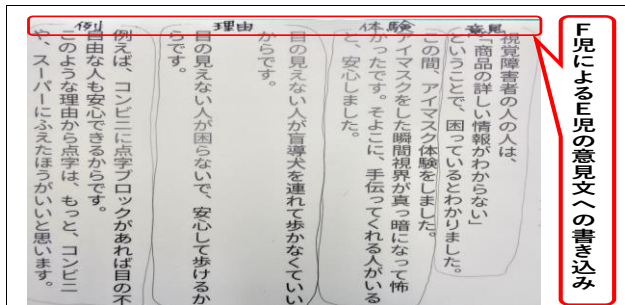 F児によるE児の意見文への書き込み
意見
体験
理由
例
視覚障害者の人の人は、
「商品の詳しい情報がわからない」
ということで、困っているとわかりました。
この間、アイマスク体験をしました。
アイマスクをした瞬間視界が真っ暗になって怖
かったです。そよこに、手伝ってくれる人がいる
と、安心しました。
目の見えない人が盲導犬を連れて歩かなくていい
からです。
目の見えない人が困らないで、安心して歩けるか
らです。
例えば、コンビニに点字ブロックがあれば目の不
自由な人も安心できるからです。
このような理由から点字は、もっと、コンビニ
や、スーパーにふえたほうがいいと思います。